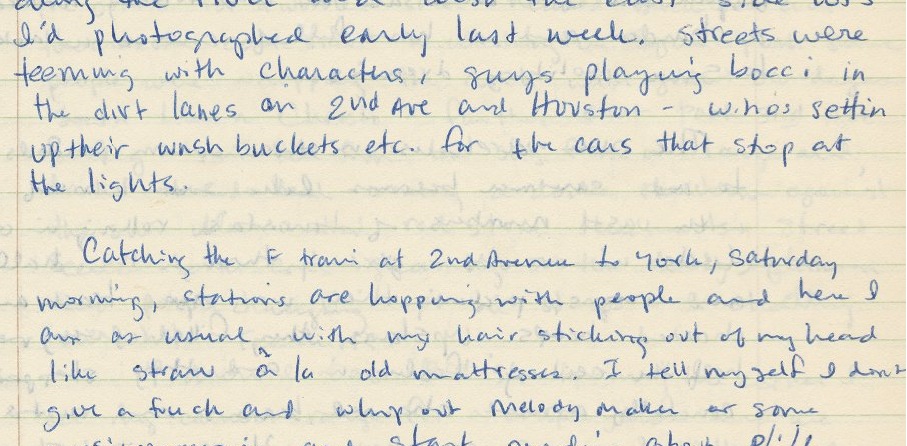 along the
I'd photographed early last week. streets were
teeming with characters, guys playing bocci in
the dirt lanes on 2nd Ave and Houston - winos settin
up their wash buckets etc. for the cars that stop at
the lights.
Catching the F train at 2nd Avenue to York, Saturday
morning, stations are hopping with people and here I
am as usual with my hair sticking out of my head
like straw à la old mattresses. I tell myself I don't
give a fuck and whip out Melody Maker or some
and start about